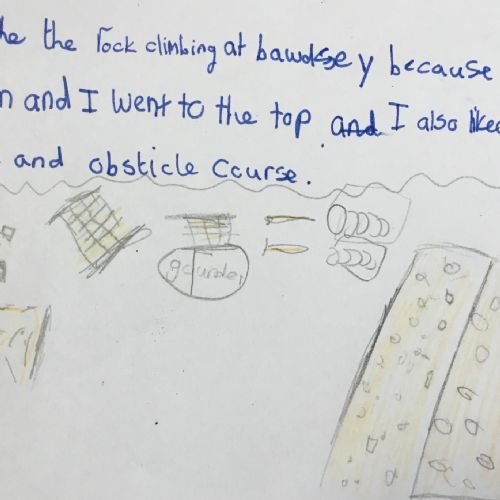 he the rock climbing at bawdsey because
n and I went to the top and I also liked
and obsticle course.